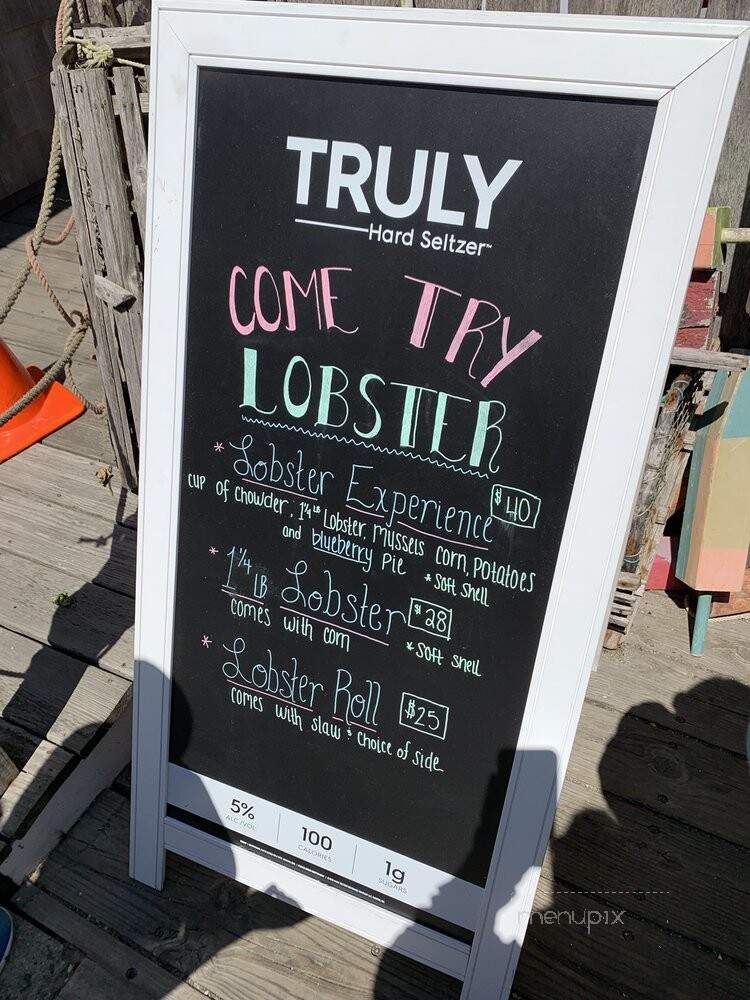 TRULY
Hard Seltzer™
COME TRY
LOBSTER
* Lobster Experience $40
cup of chowder, 1¼ LB Lobster, mussels corn, potatoes
and blueberry Pie * soft shell
* 1¼ LB Lobster $28
comes with corn * soft shell
* Lobster Roll $25
comes with slaw & choice of side
5%
ALC/VOL
100
CALORIES
1g
SUGARS
menupix